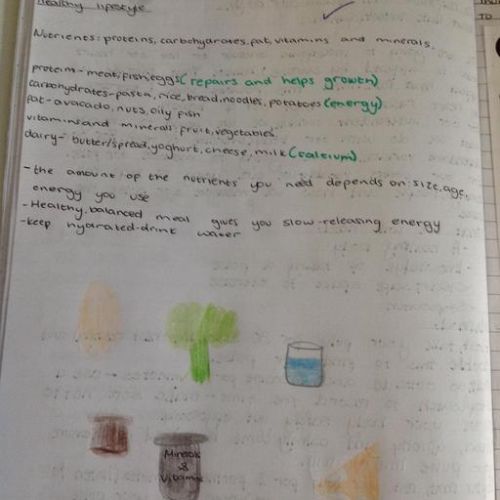 Healthy lifestyle
Nutrients: proteins, carbohydrates, fat, vitamins and minerals.
protein - meat, fish, eggs (repairs and helps growth)
carbohydrates - pasta, rice, bread, noodles, potatoes (energy)
fat - avacado, nuts, oily fish
vitamins and minerals: fruit, vegetables
dairy - butter/spread, yoghurt, cheese, milk (calcium)
- the amount of the nutrients you need depends on: size, age,
energy you use
- Healthy, balanced meal gives you slow-releasing energy
- keep hydrated - drink water
Minerals
&
Vitamins
TO